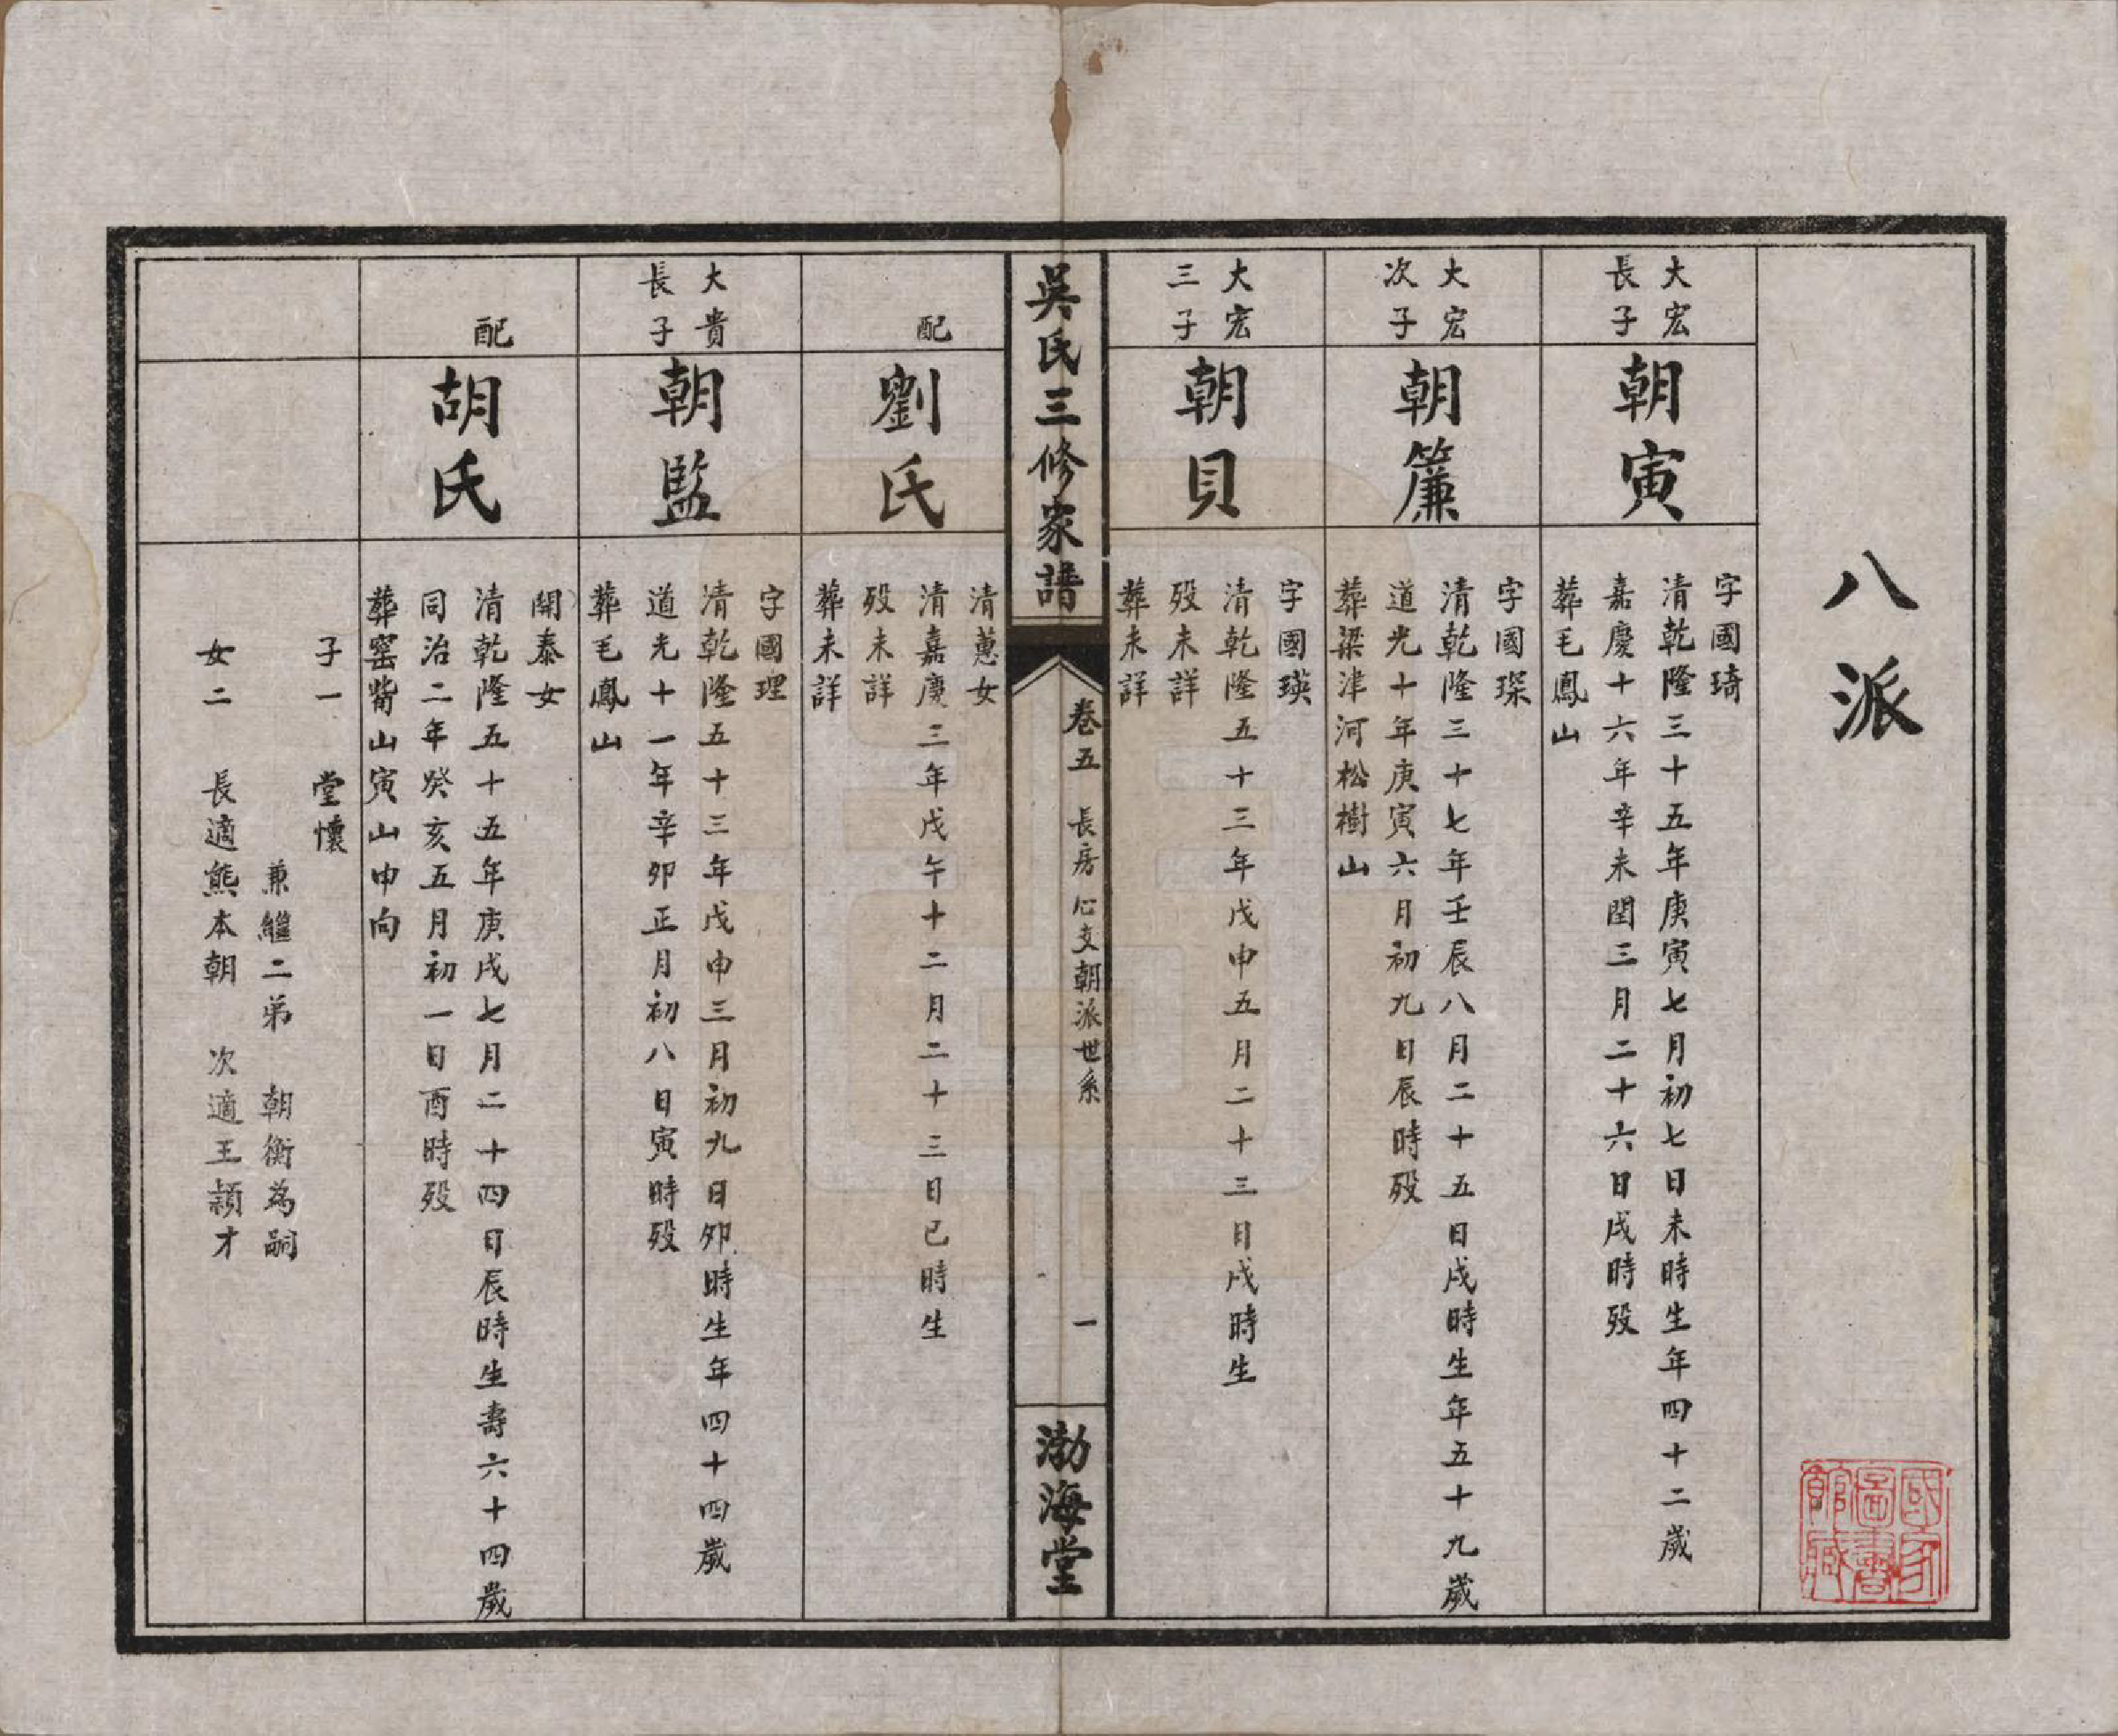 八派
大宏
長子
朝寅
字國琦
清乾隆三十五年庚寅七月初七日未時生年四十二歲
嘉慶十六年辛未閏三月二十六日戌時殁
葬毛鳳山
大宏
次子
朝簾
字國琛
清乾隆三十七年壬辰八月二十五日戌時生年五十九歲
道光十年庚寅六月初九日辰時殁
葬梁津河松樹山
大宏
三子
朝貝
字國瑛
清乾隆五十三年戊申五月二十三日戌時生
殁未詳
葬未詳
吳氏三修家譜
卷五 長房心支朝派世系 一
渤海堂
配
劉氏
清蕙女
清嘉慶三年戊午十二月二十三日巳時生
殁未詳
葬未詳
大貴
長子
朝監
字國理
清乾隆五十三年戊申三月初九日卯時生年四十四歲
道光十一年辛卯正月初八日寅時殁
葬毛鳳山
配
胡氏
開泰女
清乾隆五十五年庚戌七月二十四日辰時生壽六十四歲
同治二年癸亥五月初一日酉時殁
葬窑山寅山申向
子一 堂懷
兼繼二弟 朝衡為嗣
女二 長適熊本朝 次適王穎才
國家圖書館藏